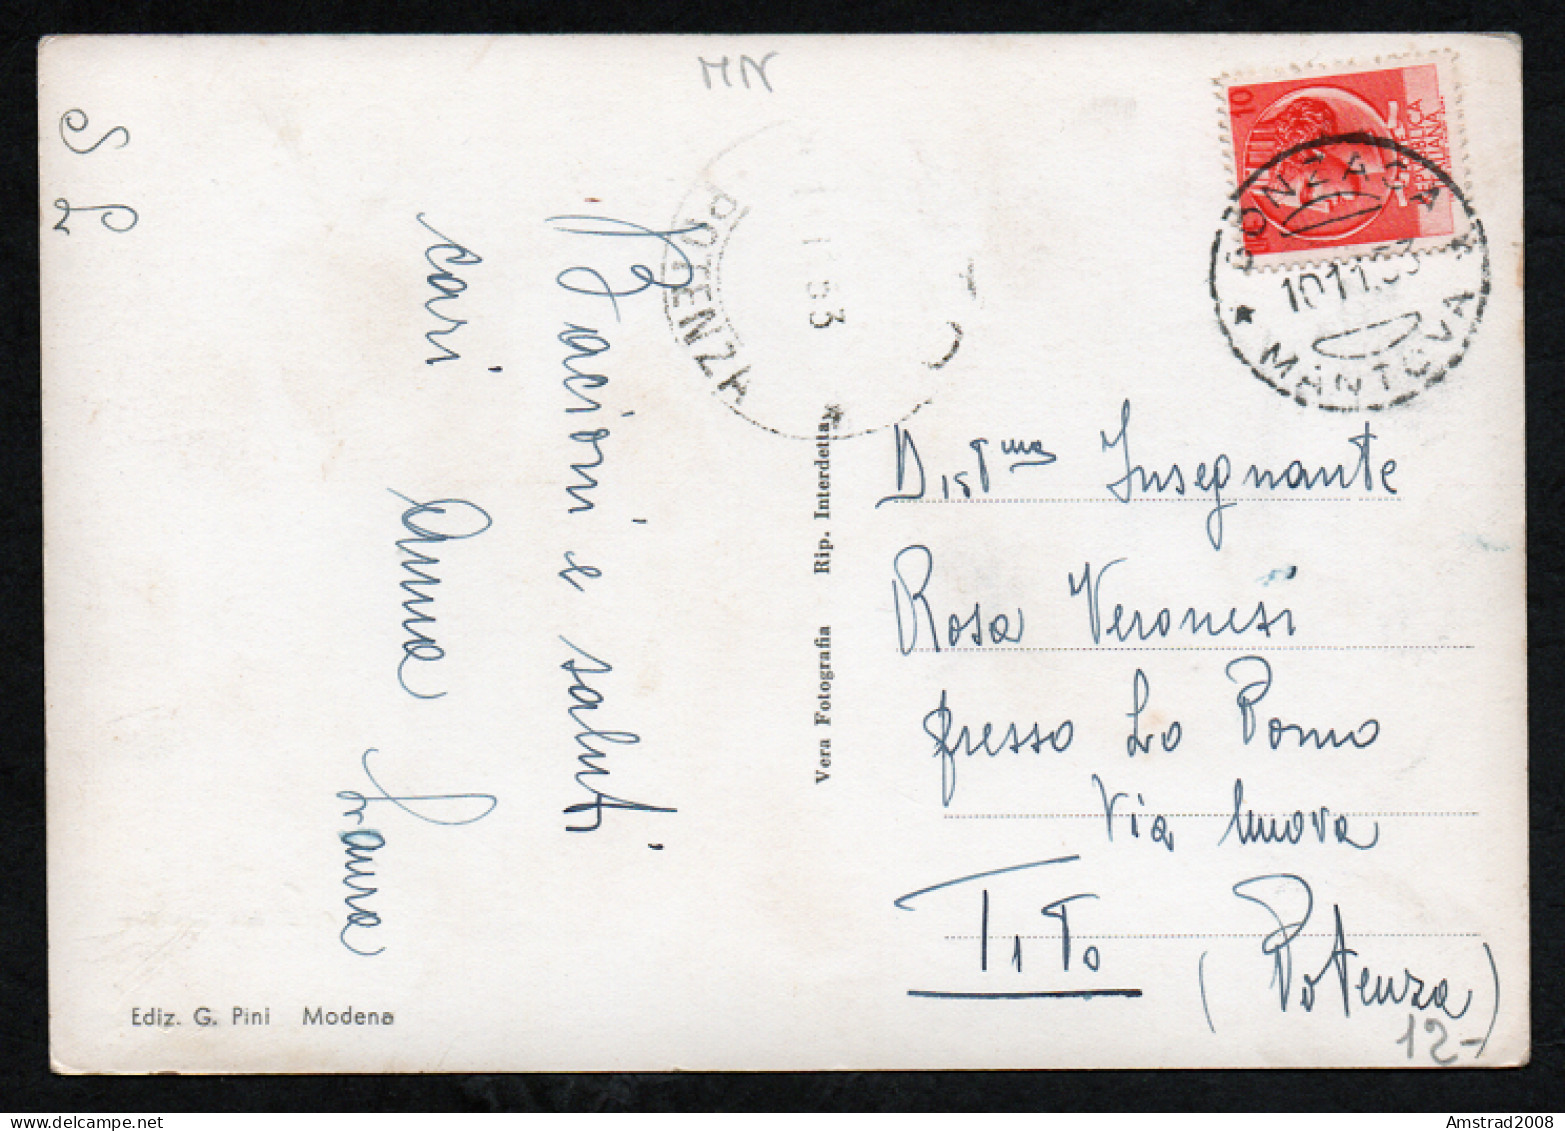 MN
S L
Bacioni e saluti
cari
Anna
Laura
POTENZA
53
10
REPUBBLICA
ITALIANA
GONZAGA
10.11.53
MANTOVA
Dist.ma Insegnante
Rosa Veronesi
presso Lo Pomo
Via Nuova
TITO
(Potenza)
12-
Vera Fotografia Rip. Interdetta
Ediz. G. Pini Modena
Amstrad2008